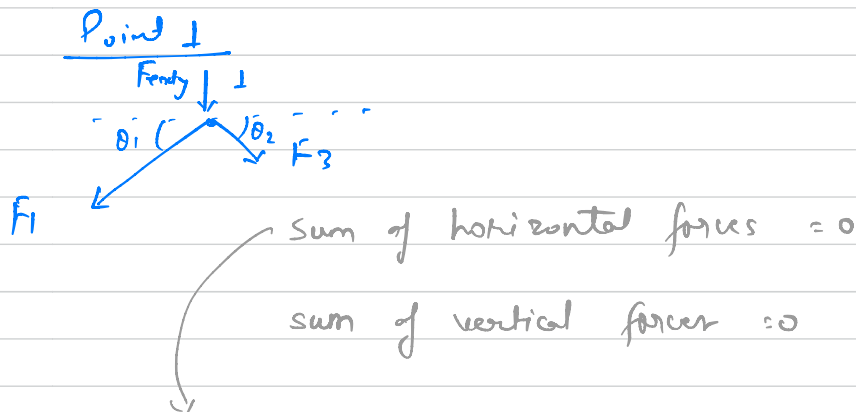 Point 1
1
θ1 θ2
F3
F1
sum of horizontal forces = 0
sum of vertical forces = 0